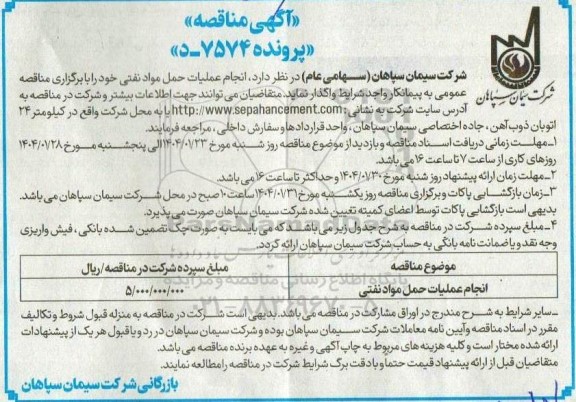 «آگهی مناقصه»
«پرونده ۷۵۷۴-د»
شرکت سیمان سپاهان
شرکت سیمان سپاهان (سهامی عام) در نظر دارد، انجام عملیات حمل مواد نفتی خود را با برگزاری مناقصه
عمومی به پیمانکار واجد شرایط واگذار نماید. متقاضیان می توانند جهت اطلاعات بیشتر و شرکت در مناقصه به
آدرس سایت شرکت به نشانی http://www.sepahancement.com یا به محل شرکت واقع در کیلومتر ۲۴
اتوبان ذوب آهن، جاده اختصاصی سیمان سپاهان، واحد قراردادها و سفارش داخلی، مراجعه فرمایند.
۱-مهلت زمانی دریافت اسناد مناقصه و بازدید از موضوع مناقصه روز شنبه مورخ ۱۴۰۴/۰۷/۲۳ الی پنجشنبه مورخ ۱۴۰۴/۰۷/۲۸
روزهای کاری از ساعت ۷ تا ساعت ۱۶ می باشد.
۲-مهلت زمان ارائه پیشنهاد روز شنبه مورخ ۱۴۰۴/۰۷/۳۰ و حداکثر تا ساعت ۱۶ می باشد.
۳-زمان بازگشایی پاکات و برگزاری مناقصه روز یکشنبه مورخ ۱۴۰۴/۰۷/۳۱ ساعت ۱۰ صبح در محل شرکت سیمان سپاهان می باشد.
بدیهی است بازگشایی پاکات توسط اعضای کمیته تعیین شده شرکت سیمان سپاهان صورت می پذیرد.
۴-مبلغ سپرده شرکت در مناقصه به شرح جدول زیر می باشد که می بایست به صورت چک تضمین شده بانکی، فیش واریزی
وجه نقد و یا ضمانت نامه بانکی به حساب شرکت سیمان سپاهان ارائه گردد.
موضوع مناقصه مبلغ سپرده شرکت در مناقصه/ریال
انجام عملیات حمل مواد نفتی ۵/۰۰۰/۰۰۰/۰۰۰
پایگاه اطلاع رسانی مناقصه و مزایده
۰۲۱-۸۸۳۴۹۶۷۰-۵
-سایر شرایط به شرح مندرج در اوراق مشارکت در مناقصه می باشد. بدیهی است شرکت در مناقصه به منزله قبول شروط و تکالیف
مقرر در اسناد مناقصه و آیین نامه معاملات شرکت سیمان سپاهان بوده و شرکت سیمان سپاهان در رد و یا قبول هر یک از پیشنهادات
ارائه شده مختار است و کلیه هزینه های مربوط به چاپ آگهی و غیره به عهده برنده مناقصه می باشد.
متقاضیان قبل از ارائه پیشنهاد قیمت حتما و با دقت برگ شرایط شرکت در مناقصه را مطالعه نمایند.
بازرگانی شرکت سیمان سپاهان